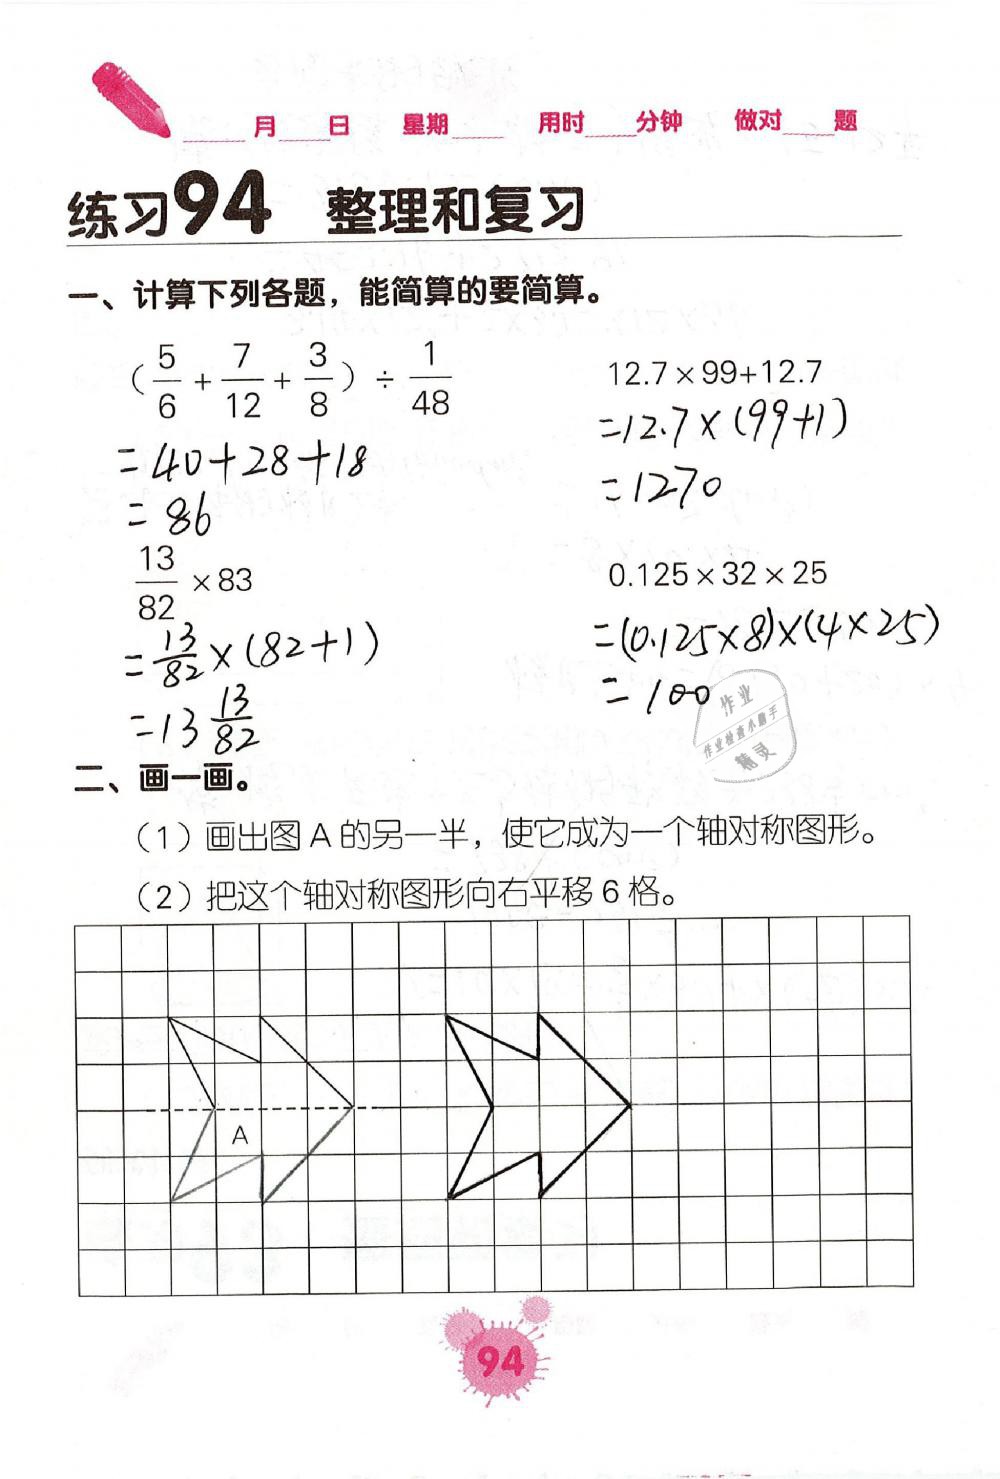 月 日 星期 用时 分钟 做对 题
练习94 整理和复习
一、计算下列各题，能简算的要简算。
(5/6 + 7/12 + 3/8) ÷ 1/48
=40+28+18
=86
12.7×99+12.7
=12.7×(99+1)
=1270
13/82 ×83
=13/82×(82+1)
=13 13/82
0.125×32×25
=(0.125×8)×(4×25)
=100
作业
作业检查小助手
精灵
二、画一画。
（1）画出图A的另一半，使它成为一个轴对称图形。
（2）把这个轴对称图形向右平移6格。
A
94